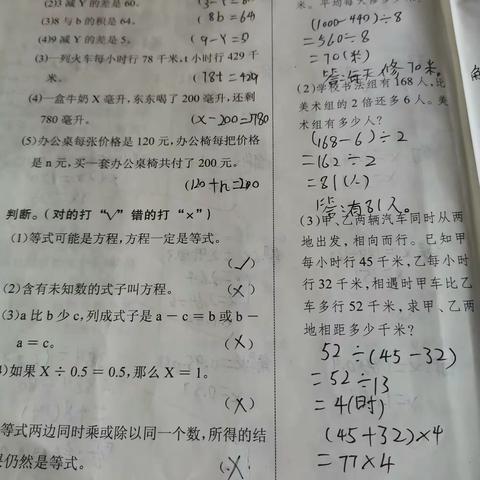 (2)3 与 Y 的差是 60.
(3)8 与 b 的积是 64。
(8b=64
(4)9 减 Y 的差是 5。
(9-Y=5
(3)一列火车每小时行 78 千米,t 小时行 429 千
米。
(78t=429
(4)一盒牛奶 X 毫升,东东喝了 200 毫升,还剩
780 毫升。
(X-200=780
(5)办公桌每张价格是 120 元,办公椅每把价格
是 n 元,买一套办公桌椅共付了 200 元。
(120+n=200
判断。(对的打“√”错的打“×”)
(1)等式可能是方程,方程一定是等式。
(√)
(2)含有未知数的式子叫方程。
(X)
(3)a 比 b 少 c,列成式子是 a-c=b 或 b-
a=c。
(X)
)如果 X÷0.5=0.5,那么 X=1。
(X)
等式两边同时乘或除以同一个数,所得的结
果仍然是等式。
(X
(1000-440)÷8
=560÷8
=70(米)
答:每天修70米。
(2)学校书法组有 168 人,比
美术组的 2 倍还多 6 人。美
术组有多少人?
(168-6)÷2
=162÷2
=81(人)
答:有81人。
(3)甲、乙两辆汽车同时从两
地出发,相向而行。已知甲
每小时行 45 千米,乙每小时
行 32 千米,相遇时甲车比乙
车多行 52 千米,求甲、乙两
地相距多少千米?
52÷(45-32)
=52÷13
=4(时)
(45+32)×4
=77×4